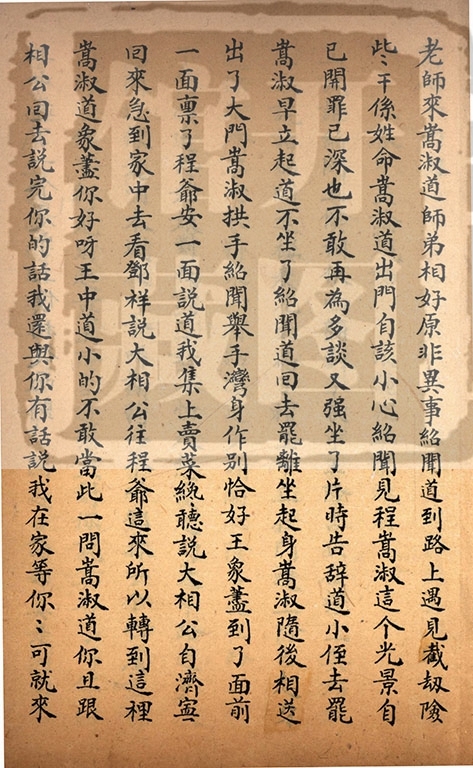 老師來嵩淑道師弟相好原非異事紹聞道到路上遇見截刼險
此〻干係姓命嵩淑道出門自該小心紹聞見程嵩淑這个光景自
已開罪已深也不敢再為多談又强坐了片時告辞道小侄去罷
嵩淑早立起道不坐了紹聞道回去罷離坐起身嵩淑隨後相送
出了大門嵩淑拱手紹聞舉手灣身作別恰好王象藎到了面前
一面禀了程爺安一面說道我集上賣菜纔聽說大相公自濟寧
回來急到家中去看鄧祥說大相公往程爺這來所以轉到這裡
嵩淑道象藎你好呀王中道小的不敢當此一問嵩淑道你且跟
相公回去説完你的話我還與你有話說我在家等你〻可就來